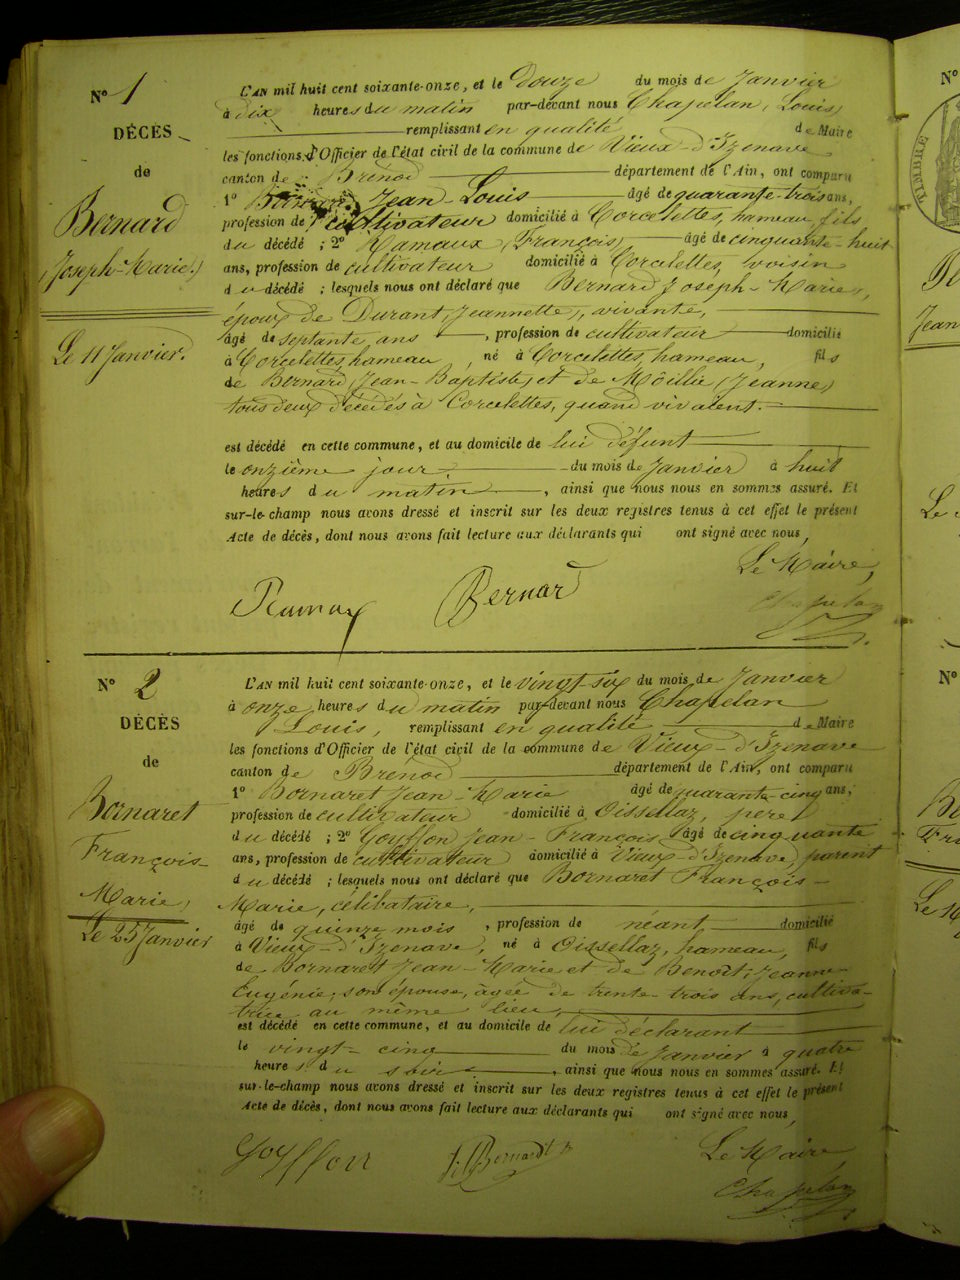 N° 1
DÉCÈS
de
Bernard
(Joseph-Marie.)
Le 11 Janvier.
L'AN mil huit cent soixante-onze, et le Douze du mois de Janvier
à dix heures du matin par-devant nous Chapelan, Louis,
remplissant en qualité de Maire
les fonctions d'Officier de l'état civil de la commune de Vieux-d'Izenave
canton de Brénod département de l'Ain, ont comparu
1° Bernard Jean-Louis âgé de quarante-trois ans,
profession de cultivateur domicilié à Corcelettes, hameau, fils
du décédé ; 2° Ramaux (François) âgé de cinquante-huit
ans, profession de cultivateur domicilié à Corcelettes, voisin
du décédé ; lesquels nous ont déclaré que Bernard Joseph-Marie,
époux de Durant, Jeannette, vivante,
âgé de septante ans, profession de cultivateur domicilié
à Corcelettes, hameau, né à Corcelettes, hameau, fils
de Bernard, Jean-Baptiste, et de Môillie, (Jeanne,)
tous deux décédés à Corcelettes, quand vivaient.
est décédé en cette commune, et au domicile de lui défunt
le onzième jour du mois de Janvier à huit
heures du matin, ainsi que nous nous en sommes assuré. Et
sur-le-champ nous avons dressé et inscrit sur les deux registres tenus à cet effet le présent
Acte de décès, dont nous avons fait lecture aux déclarants qui ont signé avec nous,
Le Maire,
Ramax Bernard Chapelan
N° 2
DÉCÈS
de
Bornaret
François-
Marie,
Le 25 Janvier
L'AN mil huit cent soixante-onze, et le vingt-six du mois de Janvier
à onze heures du matin par-devant nous Chapelan
Louis, remplissant en qualité de Maire
les fonctions d'Officier de l'état civil de la commune de Vieux-d'Izenave
canton de Brénod département de l'Ain, ont comparu
1° Bornaret Jean-Marie âgé de quarante-cinq ans,
profession de cultivateur domicilié à Oissellaz, père
du décédé ; 2° Goyffon Jean-François âgé de cinquante
ans, profession de cultivateur domicilié à Vieux-d'Izenave, parent
du décédé ; lesquels nous ont déclaré que Bornaret François-
Marie, célibataire,
âgé de quinze mois, profession de néant domicilié
à Vieux-d'Izenave, né à Oissellaz, hameau, fils
de Bornaret Jean-Marie et de Benoît, Jeanne-
Eugénie, son épouse, âgée de trente-trois ans, cultiva-
trice au même lieu,
est décédé en cette commune, et au domicile de lui déclarant
le vingt-cinq du mois de Janvier à quatre
heures du soir, ainsi que nous nous en sommes assuré. Et
sur-le-champ nous avons dressé et inscrit sur les deux registres tenus à cet effet le présent
Acte de décès, dont nous avons fait lecture aux déclarants qui ont signé avec nous,
Goyffon Le Maire,
Chapelan
TIMBRE
N°
Jean
Le
N°